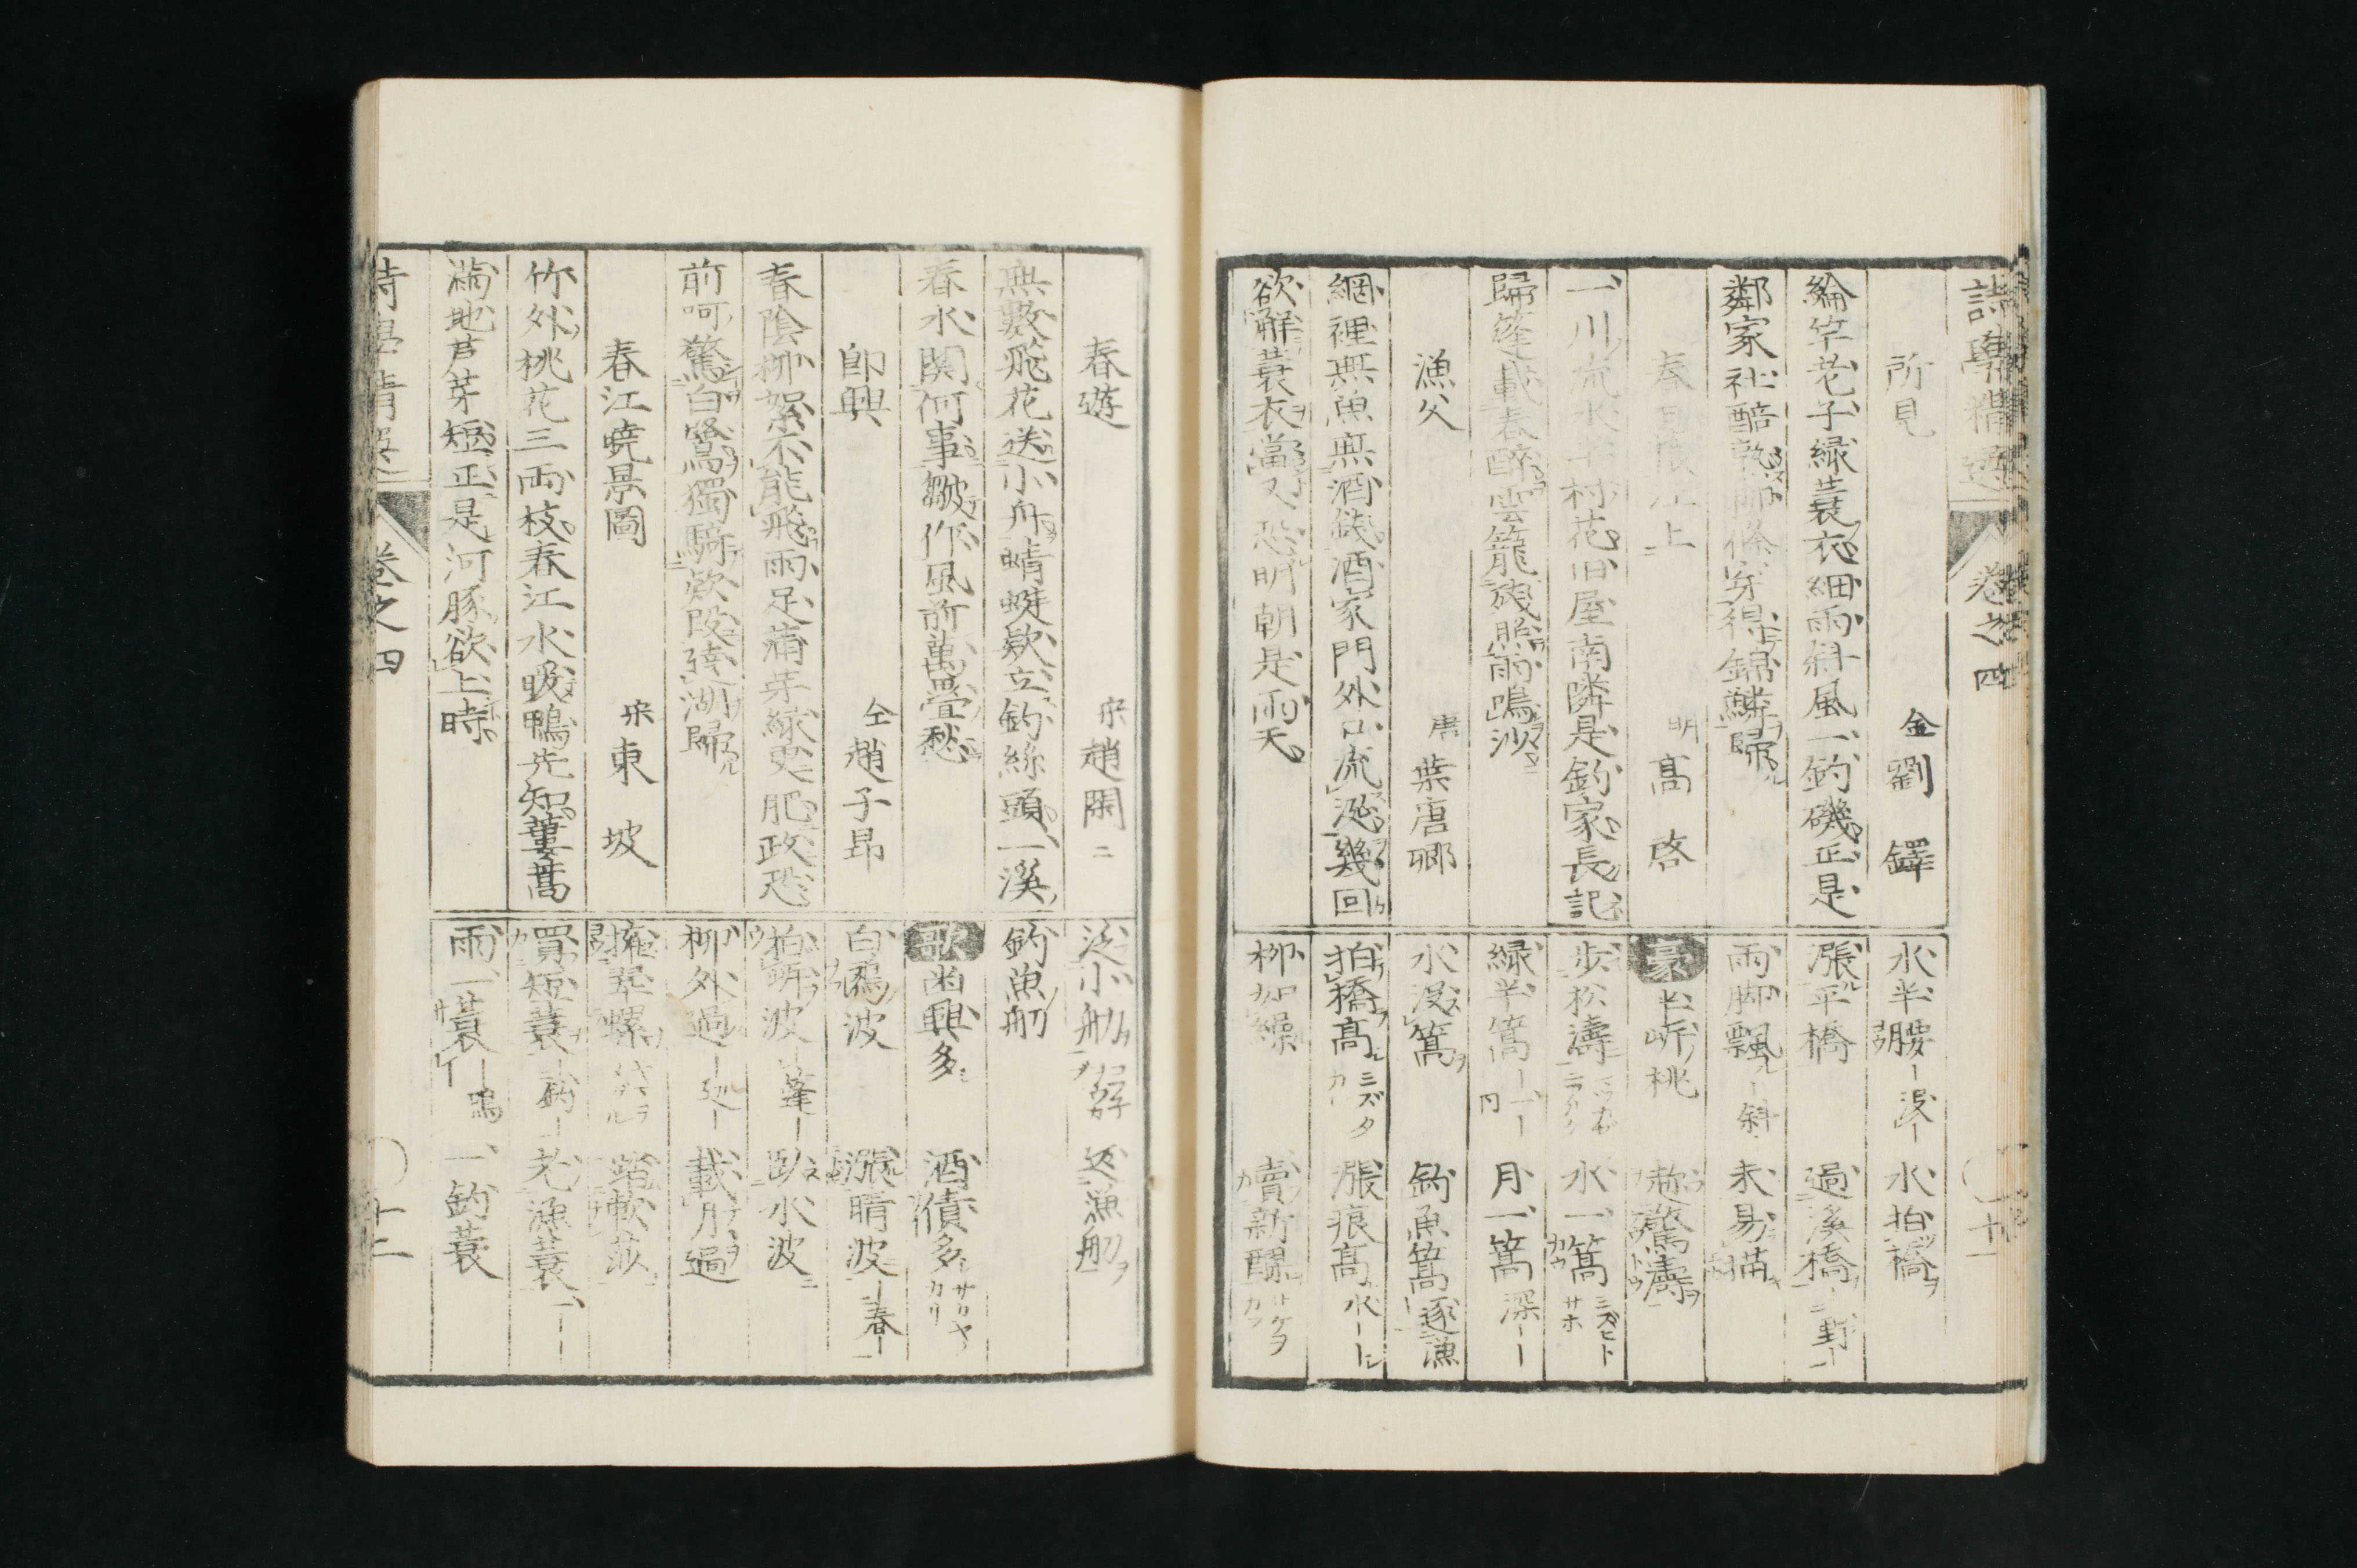 詩學精選 卷之四
所見 金 劉鐸
綸竿老子緑蓑衣細雨斜風一釣磯正是
鄰家社醅熟 條穿得錦鱗歸
春日 江上 明 高啓
一川流水半村花旧屋南隣是釣家長記
歸篷載春醉雲籠殘照雨鳴沙
漁父 唐 葉唐卿
網裡無魚無酒錢酒家門外口流涎幾回
欲解蓑衣當又恐明朝是雨天
水半腰 水拍橋
漲平橋 過溪橋 野
雨脚飄 斜 未易描
豪 半岍桃 驚濤
歩松濤 水一篙
緑半篙 月一篙 深
水没篙 釣魚篙 逐漁
拍橋高 漲痕高 水
柳如繰 賣新醪
春遊 宋 趙閑二
無數飛花送小舟蜻蜓欵立釣絲頭一溪
春水関何事皺作風前萬疊愁
即興 仝 趙子昻
春陰柳絮不能飛雨足蒲芽緑更肥政恐
前呵驚白鷺獨騎欵段遶湖歸
春江暁景圖 宋 東坡
竹外桃花三両枝春江水暖鴨先知蔞蒿
滿地芦芽短正是河豚欲上時
泛小舠 返漁舠
釣魚舠
歌 幽興多 酒債多 サカヤカリ
白鴎波 漲晴波 春
拍岍波 篷 臥水波
柳外過 載月過
擁翠螺 踏軟莎
買短蓑 老漁蓑
雨一蓑 一釣蓑
卷之四 十二